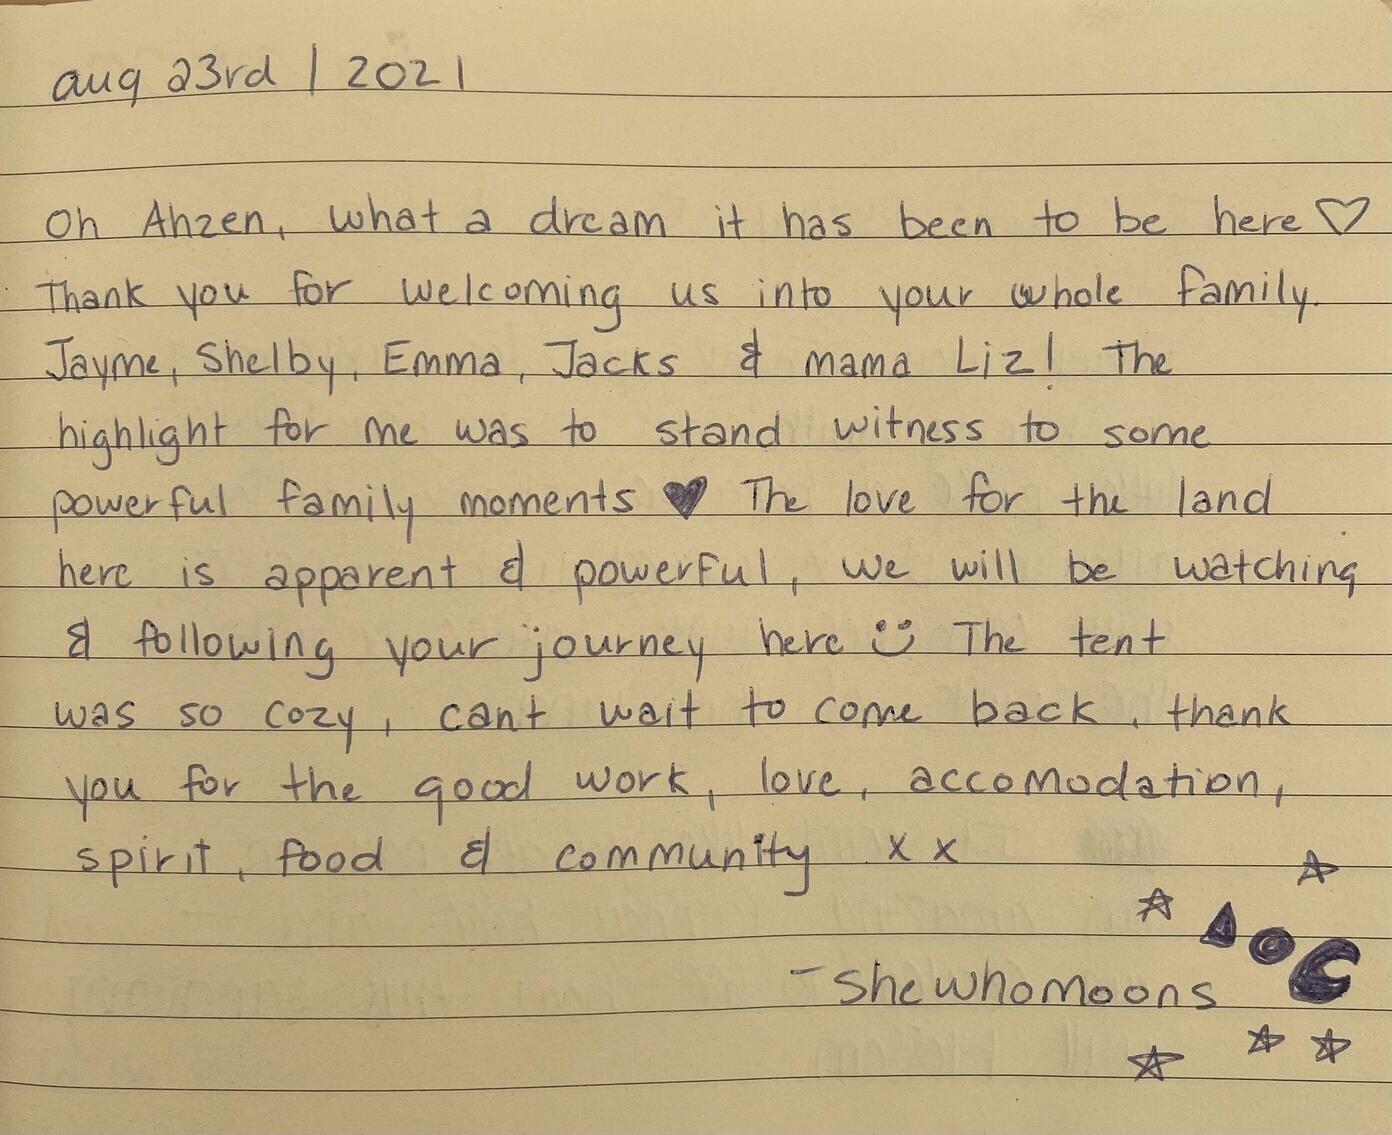 aug 23rd | 2021
Oh Ahzen, what a dream it has been to be here ♡
Thank you for welcoming us into your whole family.
Jayme, Shelby, Emma, Jacks & mama Liz! The
highlight for me was to stand witness to some
powerful family moments ♥ The love for the land
here is apparent & powerful, we will be watching
& following your journey here ☺ The tent
was so cozy, cant wait to come back, thank
you for the good work, love, accomodation,
spirit, food & community x x
- shewhomoons